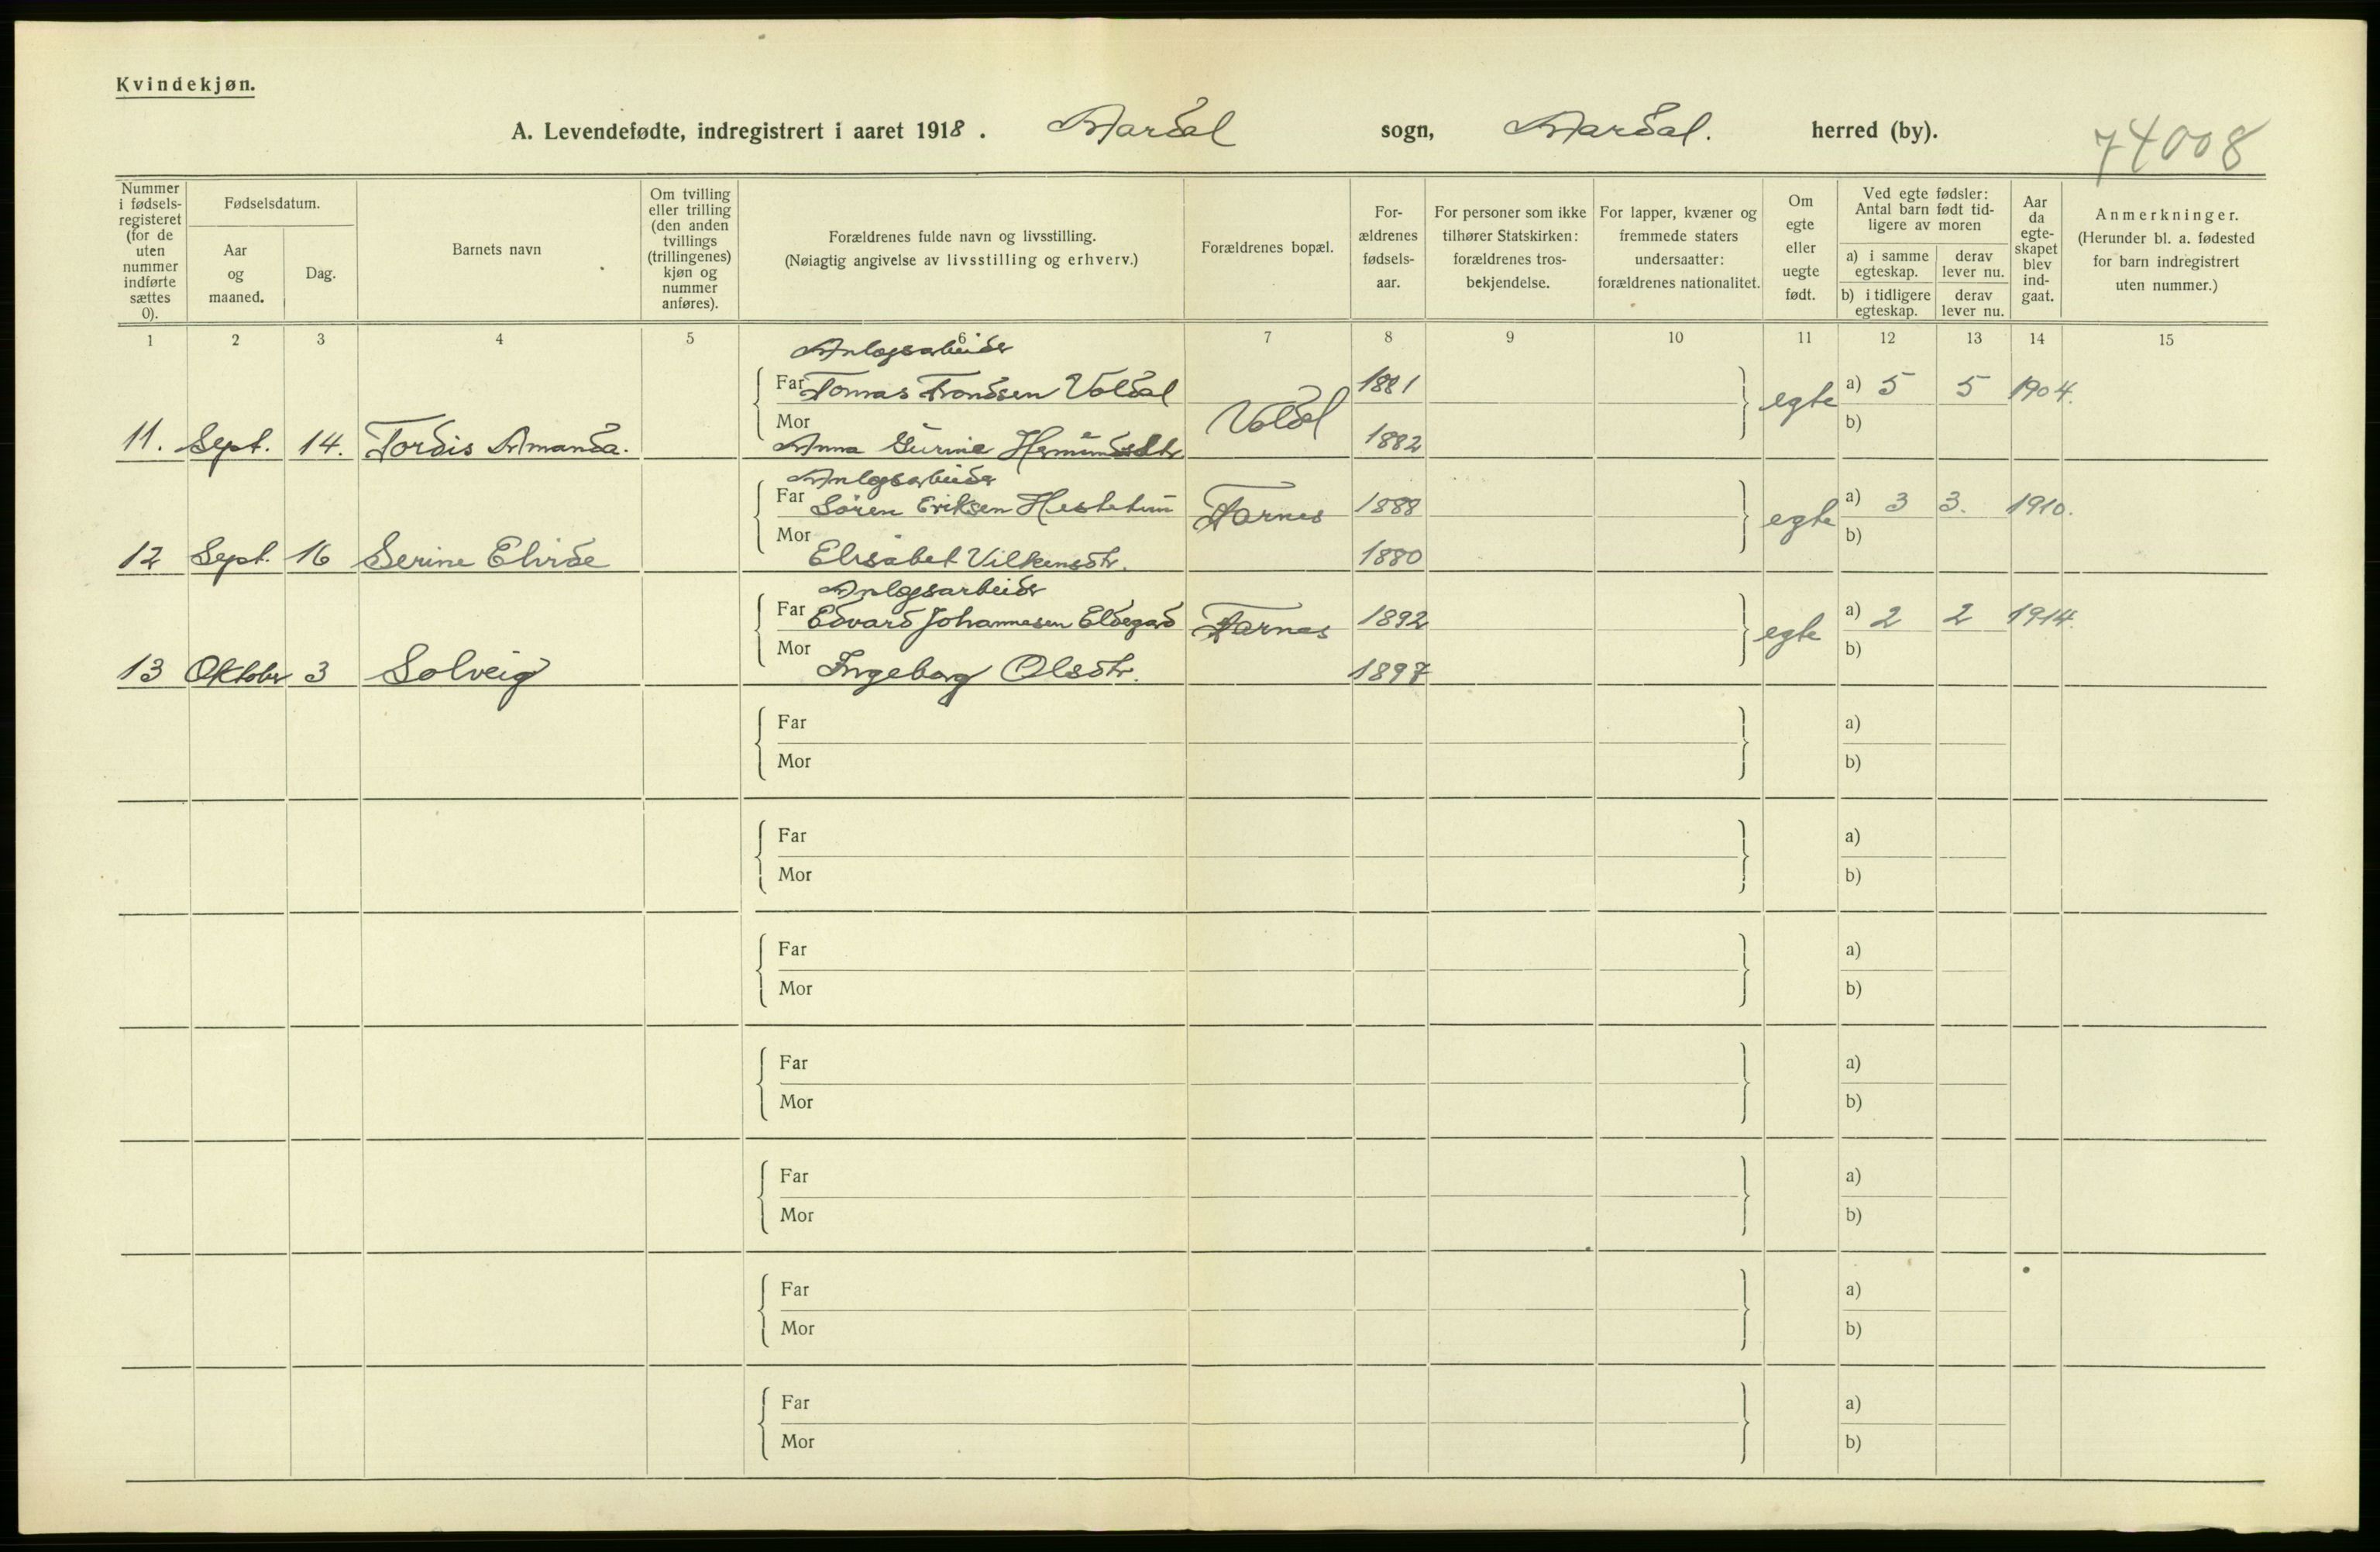 Kvindekjøn.
A. Levendefødte, indregistrert i aaret 1918. Aardal sogn, Aardal. herred (by).
74008
Nummer i fødsels-registeret (for de uten nummer indførte sættes 0).
Fødselsdatum.
Aar og maaned.
Dag.
Barnets navn
Om tvilling eller trilling (den anden tvillings (trillingenes) kjøn og nummer anføres).
Forældrenes fulde navn og livsstilling.
(Nøiagtig angivelse av livsstilling og erhverv.)
Forældrenes bopæl.
For-ældrenes fødsels-aar.
For personer som ikke tilhører Statskirken: forældrenes tros-bekjendelse.
For lapper, kvæner og fremmede staters undersaatter: forældrenes nationalitet.
Om egte eller uegte født.
Ved egte fødsler: Antal barn født tid-ligere av moren
a) i samme egteskap.
derav lever nu.
b) i tidligere egteskap.
derav lever nu.
Aar da egte-skapet blev ind-gaat.
Anmerkninger.
(Herunder bl. a. fødested for barn indregistrert uten nummer.)
1 2 3 4 5 6 7 8 9 10 11 12 13 14 15
Anlegsarbeider
Far Tomas Trondsen Voldal 1881 a) 5 5 1904.
11. Sept. 14. Tordis Amanda. Mor Anna Gurine Hermundsdtr Voldal 1882 egte b)
Anlegsarbeider
Far Søren Eriksen Hestetun Farnes 1888 egte a) 3 3. 1910.
12 Sept. 16 Serine Elvide Mor Elisabet Vilkensdtr. 1880 b)
Anlegsarbeider
Far Edvard Johannesen Eldegard Farnes 1892 egte a) 2 2 1914.
13 Oktober 3 Solveig Mor Ingeborg Olsdtr. 1897 b)
Far a)
Mor b)
Far a)
Mor b)
Far a)
Mor b)
Far a)
Mor b)
Far a)
Mor b)
Far a)
Mor b)
Far a)
Mor b)